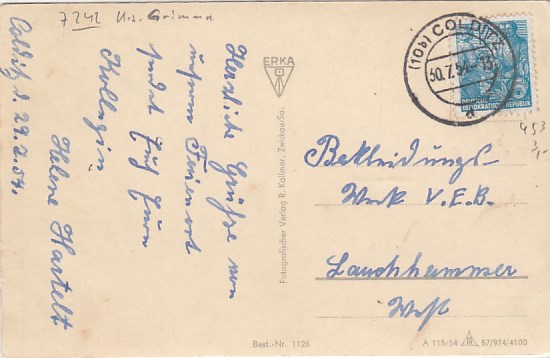 7242 Krs. Grimma
Colditz d. 29.7.54.
Herzliche Grüße von
unserem Ferienort
sendet Euch Eure
Kollegin
Helene Hartelt
ERKA
Fotografischer Verlag R. Kallmer, Zwickau/Sa.
Best.-Nr. 1126
(10b) COLDITZ
30.7.54
a
DEUTSCHE
DEMOKRATISCHE REPUBLIK
453
Bekleidungs-
Werk V.E.B.
Lauchhammer
West
A 115/54 57/974/4100